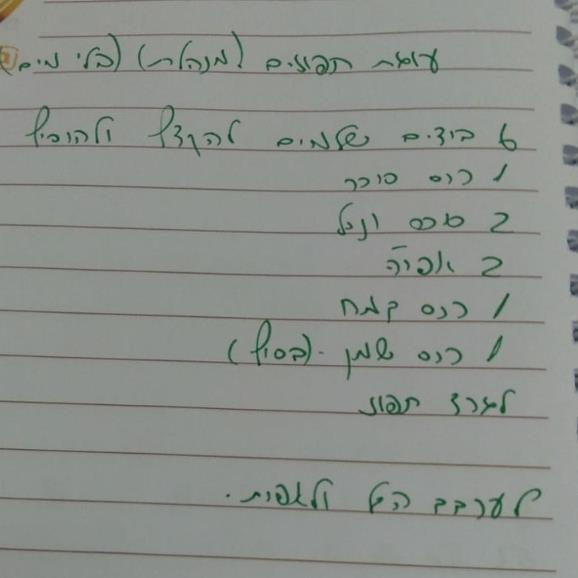 עוגת תפוזים (מנהלת) (בלי מים)
6 ביצים שלמים להקציף ולהוסיף
1 כוס סוכר
2 סוכר וניל
2 אפיה
1 כוס קמח
1 כוס שמן - (בסוף)
לגרד תפוז
לערבב הכל ולאפות.